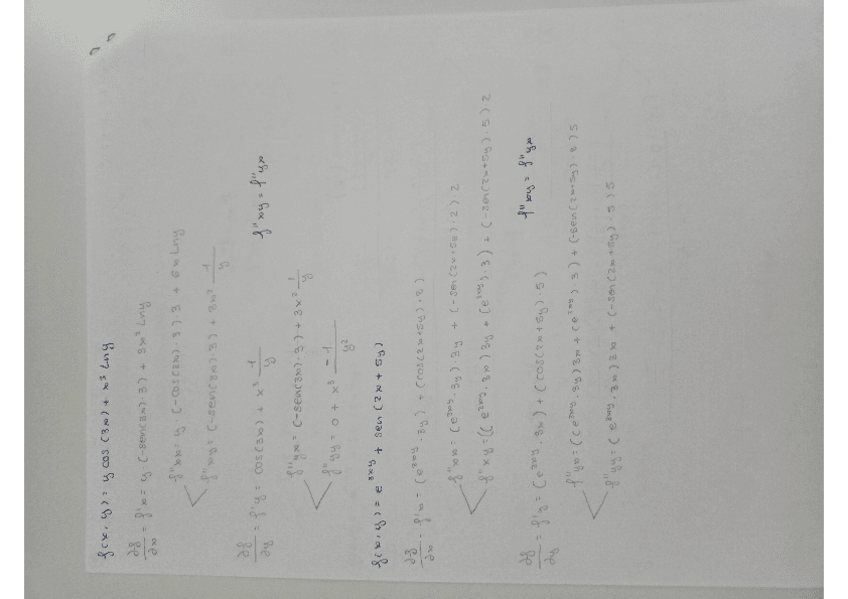 f(x, y) = y cos (3x) + x³ Lny
∂f/∂x = f'x = y (-sen(3x)·3) + 3x² Lny
f''xx = y · (-cos(3x)·3)·3 + 6x Lny
f''xy = (-sen(3x)·3) + 3x² 1/y
∂f/∂y = f'y = cos(3x) + x³ 1/y
f''xy = f''yx
f''yx = (-sen(3x)·3) + 3x² 1/y
f''yy = 0 + x³ -1/y²
f(x, y) = e^3xy + sen (2x + 5y)
∂f/∂x = f'x = (e^3xy · 3y) + (cos(2x+5y)·2)
f''xx = (e^3xy · 3y) · 3y + (-sen(2x+5y)·2) 2
f''xy = ((e^3xy · 3x) 3y + (e^3xy)·3) + (-sen(2x+5y)·5) 2
∂f/∂y = f'y = (e^3xy · 3x) + (cos(2x+5y)·5)
f''xy = f''yx
f''yx = ((e^3xy · 3y) 3x + (e^3xy)·3) + (-sen(2x+5y)·2) 5
f''yy = (e^3xy · 3x) 3x + (-sen(2x+5y)·5) 5